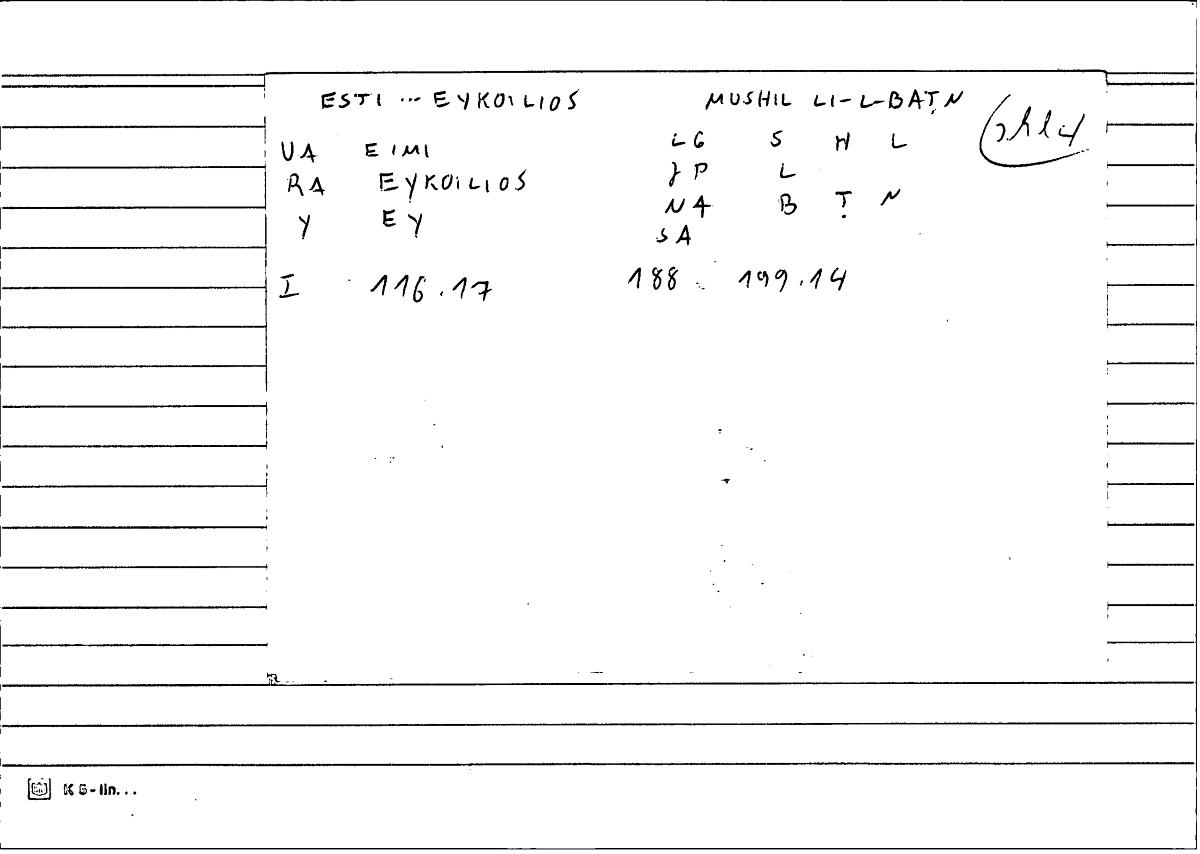 ESTI ... EYKOILIOS MUSHIL LI-L-BAṬN
UA EIMI LG S H L
RA EYKOILIOS JP L
Y EY NA B Ṭ N
SA
I 116.17 188 199.14
K 5-lin...